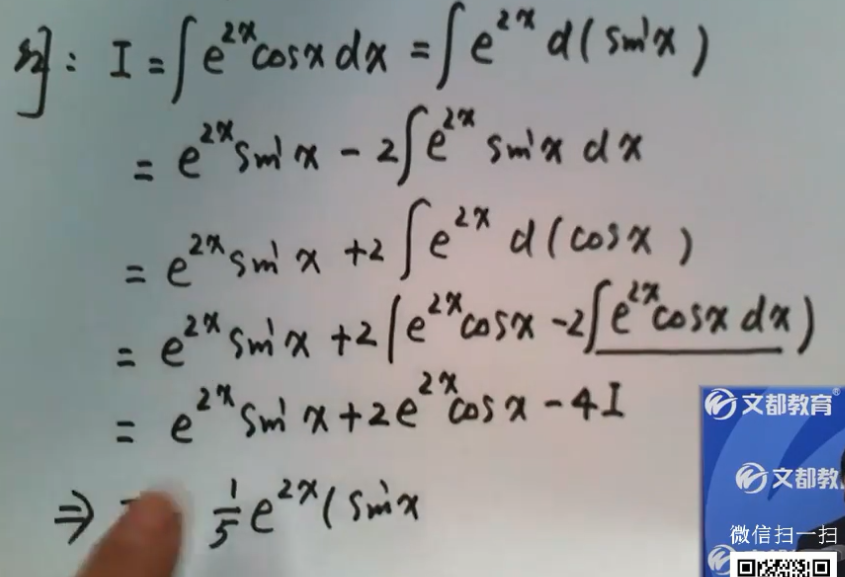 解: I = ∫e^{2x}cosx dx = ∫e^{2x} d(sinx)
= e^{2x}sinx - 2∫e^{2x} sinx dx
= e^{2x}sinx + 2∫e^{2x} d(cosx)
= e^{2x}sinx + 2(e^{2x}cosx - 2∫e^{2x}cosx dx)
= e^{2x}sinx + 2e^{2x}cosx - 4I
⇒ 1/5 e^{2x}(sinx
文都教育®
文都教
微信扫一扫